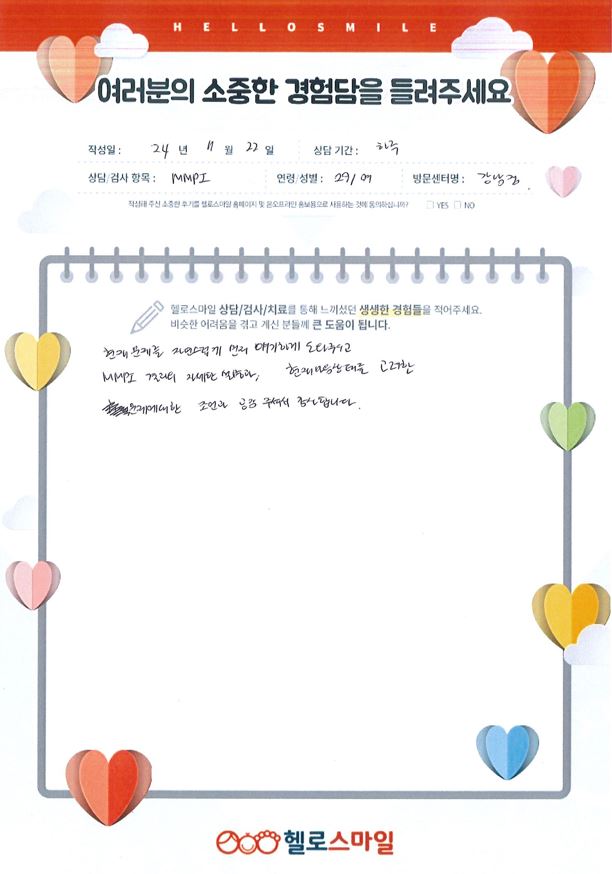 HELLOSMILE
여러분의 소중한 경험담을 들려주세요
작성일 : 24 년 11 월 22 일 상담 기간 : 하루
상담/검사 항목 : MMPI 연령/성별 : 29/여 방문센터명 : 강남점.
작성해 주신 소중한 후기를 헬로스마일 홈페이지 및 온오프라인 홍보용으로 사용하는 것에 동의하십니까? YES NO
헬로스마일 상담/검사/치료를 통해 느끼셨던 생생한 경험들을 적어주세요.
비슷한 어려움을 겪고 계신 분들께 큰 도움이 됩니다.
현재 문제를 자연스럽게 먼저 얘기하게 도와주시고
MMPI 결과의 자세한 설명과, 현재 상태를 고려한
문제에대한 조언과 공감 주셔서 감사합니다.
헬로스마일